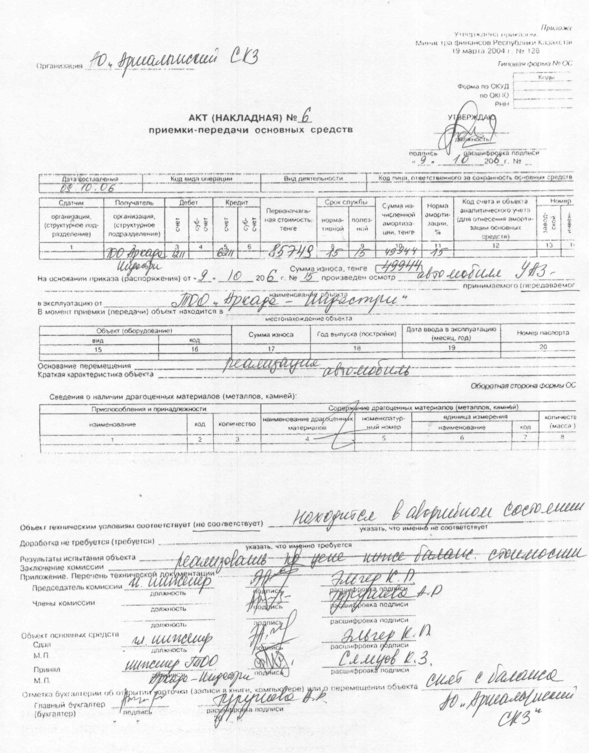 Приложе
Утверждена приказом
Министра финансов Республики Казахстан
19 марта 2004 г. № 128
Типовая форма № ОС
Организация
СКЗ
Коды
Форма по ОКУД
по ОКПО
РНН
АКТ (НАКЛАДНАЯ) № 6
приемки-передачи основных средств
УТВЕРЖДАЮ
должность
подпись расшифровка подписи
" 9 " 10 2006 г. №
Дата составления Код вида операции Вид деятельности Код лица, ответственного за сохранность основных средств
09.10.06
Сдатчик Получатель Дебет Кредит Первоначальная стоимость, тенге Срок службы Сумма начисленной амортизации, тенге Норма амортизации, % Код счета и объекта аналитического учета (для отнесения амортизации основных средств) Номер
организация, (структурное подразделение) организация, (структурное подразделение) счет субсчет счет субсчет нормативной полезной
1 3 4 5 12 13
ТОО Аркада 85749 15 15 49944 15
Индастри
Сумма износа, тенге 49944
На основании приказа (распоряжения) от " 9 " 10 2006 г. № 15 произведен осмотр автомобили УАЗ-
наименование объекта
принимаемого (передаваемого
в эксплуатацию от ТОО "Аркада - Индастри"
В момент приемки (передачи) объект находится в
местонахождение объекта
Объект (оборудование) Сумма износа Год выпуска (постройки) Дата ввода в эксплуатацию (месяц, год) Номер паспорта
вид код
15 16 17 18 19 20
Основание перемещения реализация
Краткая характеристика объекта автомобиль
Оборотная сторона формы ОС
Сведения о наличии драгоценных материалов (металлов, камней):
Приспособления и принадлежности Содержание драгоценных материалов (металлов, камней)
наименование код количество наименование драгоценных материалов номенклатурный номер единица измерения количество (масса)
наименование код
1 2 3 4 5 6 7 8
Объект техническим условиям соответствует (не соответствует) находится в аварийном состоянии
указать, что именно не соответствует
Доработка не требуется (требуется)
указать, что именно требуется
Результаты испытания объекта
Заключение комиссии реализовать по цене ниже баланс. стоимости
Приложение. Перечень технической документации
Председатель комиссии гл. инженер Эльгер К.П.
должность подпись расшифровка подписи
Члены комиссии А.Р.
должность подпись расшифровка подписи
должность подпись расшифровка подписи
Объект основных средств
Сдал гл. инженер Эльгер К.П.
М.П.
Принял инженер ТОО К.З.
М.П. Аркада-Индастри
Отметка бухгалтерии об открытии карточки (записи в книге, компьютере) или о перемещении объекта снят с баланса
Главный бухгалтер
(бухгалтер) подпись расшифровка подписи
СКЗ"